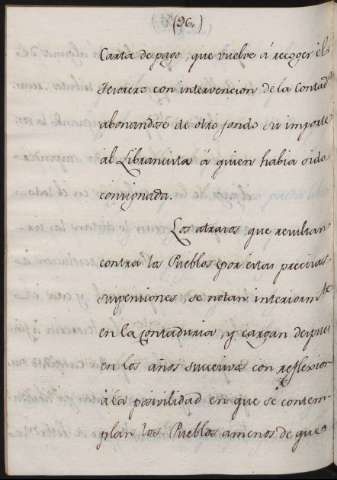 (96.)
Carta de pago, que vuelve á recoger el
Tesorero con intervencion de la Contad.ª
abonandose de otro fondo su importe
al Librancista á quien habia sido
consignada.
Los atrasos que resultan
contra los Pueblos por estas precisas
suspensiones se notan interiorm.te
en la Contaduria, y cargan despues
en los años sucesivos con reflexion
á la posivilidad en que se contem-
plan los Pueblos amenos de que